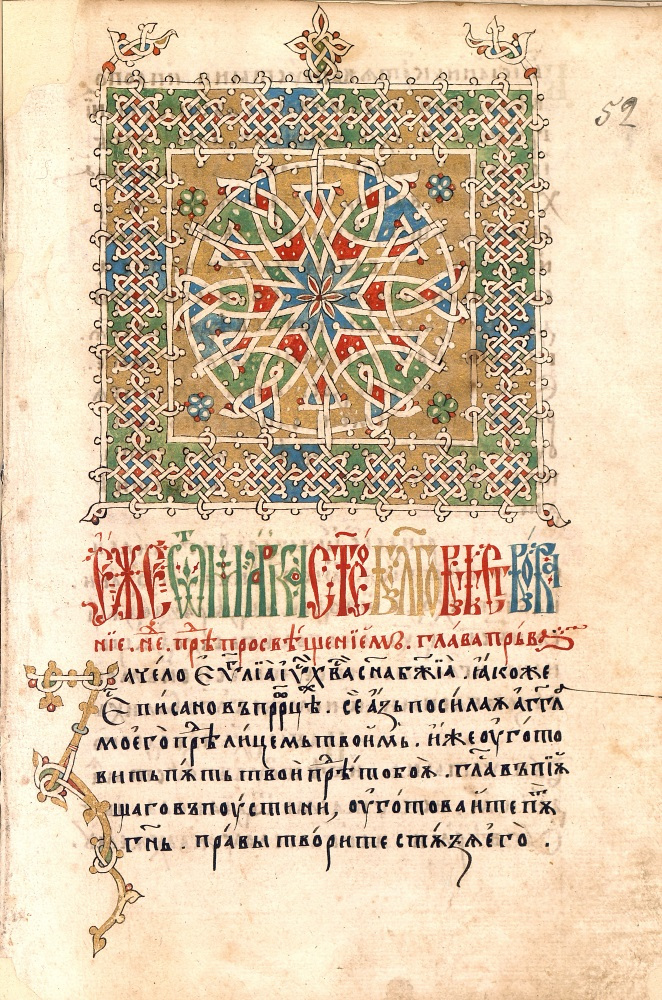 52
Е́ЖЕ Ѿ МАРКА СТ҃ОЕ БЛ҃ГОВѢСТВОВА
нїе. н҃е. прѣⷣ просвѣщенїемь. глава прьваѧ
Зачело еѵⷢ҇лїа і҆у҃ х҃ва сн҃а бж҃їа. ꙗкоже
єписано въ прⷪ҇рцѣ. се азь посилаѫ агг҃л
моего прѣⷣ лицемь твоимь. иже оугото
вить пѫть твои прѣⷣ тобоѫ. гл҃а въпїѫ
щаго въ поустини, оуготоваите пѫⷮ
гн҃ь. правы творите стъзѫ его.